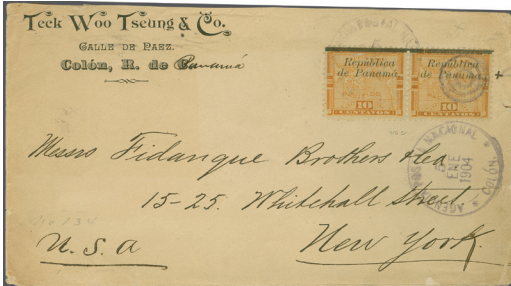 Teck Woo Tseung & Co.
CALLE DE PAEZ.
Colón, R. de Panamá
República
de Panamá.
10
CENTAVOS
República
de Panamá.
10
CENTAVOS
AGENCIA POSTAL NACIONAL
ENE
1904
COLÓN.
Messrs Fidanque Brothers & Co
15-25. Whitehall Street
New York.
U.S.A